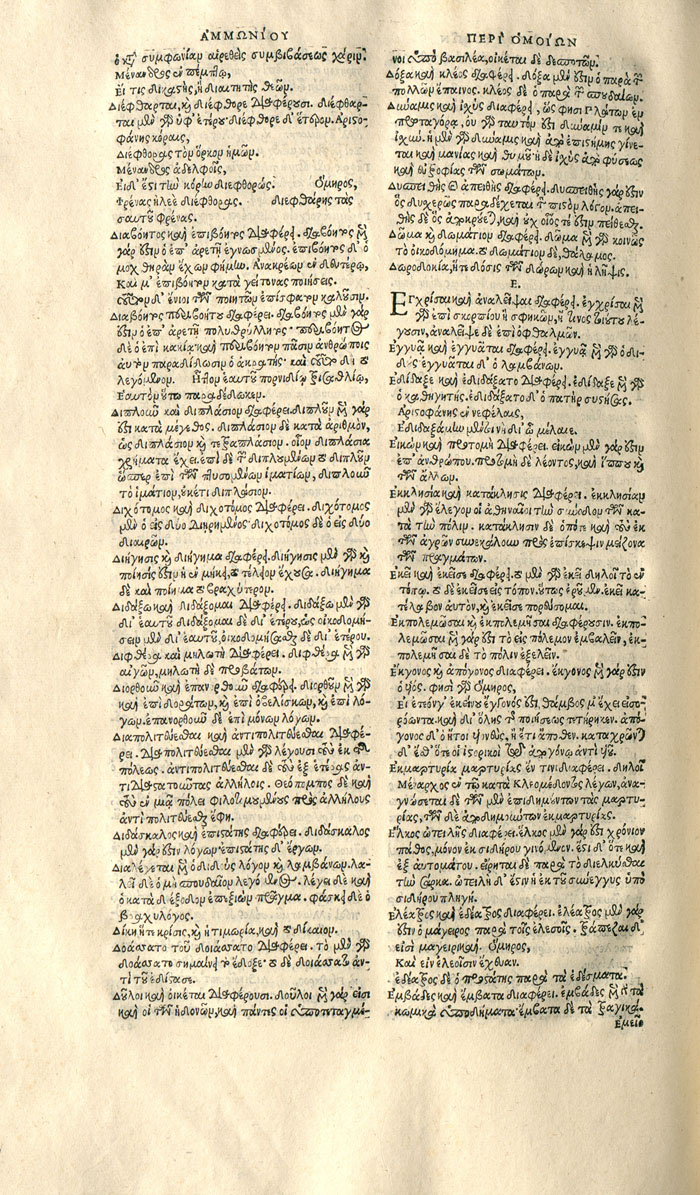 ΑΜΜΩΝΙΟΥ
συμφωνίαν αἱρεθεὶς συμβιβάσεως χάριν.
Μένανδρος ἐν πέμπτῳ,
Εἴ τις δικαστὴς, ἢ διαιτητὴς θεῶν.
Διέφθαρται, καὶ διέφθορε διαφέρουσι. διέφθαρ-
ται μὲν γὰρ ὑφ' ἑτέρου· διέφθορε δ' ἕτερον. Ἀριστο-
φάνης κόραις,
Διέφθορας τὸν ὅρκον ἡμῶν.
Μένανδρος ἀδελφοῖς,
Εἰ δ' ἔστι τὴν κόρην διεφθορώς. Ὅμηρος,
Φρένας ἠλεὲ διέφθορας. διεφθάρης τὰς
σαυτοῦ φρένας.
Διαβόητος καὶ ἐπιβόητος διαφέρει. διαβόητος μὲν
γάρ ἐστιν ὁ ἐπ' ἀρετῇ ἐγνωσμένος. ἐπιβόητος δ' ὁ
μοχθηρὰν ἔχων φήμην. Ἀνακρέων ἐν δευτέρῳ,
Καὶ μ' ἐπιβόητον κατὰ γείτονας ποιήσεις.
δ' ἔνιοι τῶν ποιητῶν ἐπίσφατον καλοῦσιν.
Διαβόητος περιβοήτου διαφέρει. διαβόητος μὲν γάρ
ἐστιν ὁ ἐπ' ἀρετῇ πολυθρύλλητος· περιβόητος
δὲ ὁ ἐπὶ κακίᾳ καὶ περιβόητον πᾶσιν ἀνθρώποις
αὑτὸν παραδίδωσιν ὁ ἀκρατής·
λεγόμενον.
Ἑαυτὸν οὕτω παραδέδωκεν.
Διπλοῦν καὶ διπλάσιον διαφέρει. διπλοῦν μὲν γάρ
ἐστι κατὰ μέγεθος. διπλάσιον δὲ κατὰ ἀριθμὸν,
ὡς διπλάσιον καὶ τετραπλάσιον. οἷον διπλάσια
χρήματα ἔχει. ἐπὶ δὲ τοῦ διπλουμένου διπλοῦν
ὥσπερ ἐπὶ τῶν πτυσσομένων ἱματίων, διπλοῦν
τὸ ἱμάτιον, οὐκέτι διπλάσιον.
Διχότομος καὶ διχοτόμος διαφέρει. διχότομος
μὲν ὁ εἰς δύο διῃρημένος· διχοτόμος δὲ ὁ εἰς δύο
διαιρῶν.
Διήγησις καὶ διήγημα διαφέρει. διήγησις μὲν γὰρ καὶ
ποίησίς ἐστιν ἐν μήκει, τέλος ἔχουσα. διήγημα
δὲ καὶ ποίημα βραχύτερον.
Διδάξω καὶ διδάξομαι διαφέρει. διδάξω μὲν γὰρ
δι' ἑαυτοῦ διδάξομαι δὲ δι' ἑτέρου, ὡς οἰκοδομή-
σειν μὲν δι' ἑαυτοῦ, οἰκοδομήσασθαι δὲ δι' ἑτέρου.
Διφθέρα καὶ μηλωτὴ διαφέρει. διφθέρα μὲν γὰρ
αἰγῶν, μηλωτὴ δὲ προβάτων.
Διορθοῦν καὶ ἐπανορθοῦν διαφέρει. διορθοῦν μὲν γὰρ
καὶ ἐπὶ δοράτων, καὶ ἐπὶ ὀβελίσκων, καὶ ἐπὶ λό-
γων. ἐπανορθοῦν δὲ ἐπὶ μόνων λόγων.
Διαπολιτεύεσθαι καὶ ἀντιπολιτεύεσθαι διαφέ-
ρει. διαπολιτεύεσθαι μὲν γὰρ λέγουσι τοὺς ἐκ τῆς
πόλεως. ἀντιπολιτεύεσθαι δὲ τοὺς ἐξ ἑτέρας ἀν-
τιδιατασσομένας ἀλλήλοις. Θεόπομπος δὲ καὶ
τοὺς ἐν μιᾷ πόλει φιλοτιμουμένους πρὸς ἀλλήλους
ἀντιπολιτεύεσθαι ἔφη.
Διδάσκαλος καὶ ἐπιστάτης διαφέρει. διδάσκαλος
μὲν γάρ ἐστιν λόγων· ἐπιστάτης δ' ἔργων.
Διαλέγεται μὲν ὁ διδοὺς λόγον καὶ λαμβάνων. λα-
λεῖ δὲ ὁ μὴ σπουδαῖον λεγόμενος. λέγει δὲ καὶ
ὁ κατὰ διέξοδον ἐπεξιὼν πρᾶγμα. φάσκει δὲ ὁ
βραχυλόγος.
Δίκη ἥ τε κρίσις, καὶ ἡ τιμωρία, καὶ τὸ δίκαιον.
Δοάσσατο τοῦ δοιάσσατο διαφέρει. τὸ μὲν γὰρ
δοάσσατο σημαίνει τὸ ἔδοξε· τὸ δὲ δοιάσσατο ἀν-
τὶ τοῦ ἐδίστασε.
Δοῦλοι καὶ οἰκέται διαφέρουσι. δοῦλοι μὲν γάρ εἰσι
καὶ οἱ τῶν ἡδονῶν, καὶ πάντες οἱ ὑποτεταγμέ-
ΠΕΡΙ ΟΜΟΙΩΝ
νοι ὑπὸ βασιλέα, οἰκέται δὲ δεσποτῶν.
Δόξα καὶ κλέος διαφέρει. δόξα μὲν γάρ ἐστιν ὁ παρὰ τῶν
πολλῶν ἔπαινος. κλέος δὲ ὁ παρὰ τῶν σπουδαίων.
Δύναμις καὶ ἰσχὺς διαφέρει, ὥς φησι Πλάτων ἐν
Πρωταγόρᾳ, οὐ γὰρ ταυτόν ἐστι δύναμίν τε καὶ
ἰσχύν. ἡ μὲν γὰρ δύναμις καὶ ἀπὸ ἐπιστήμης γίνε-
ται καὶ μανίας καὶ θυμοῦ· ἡ δὲ ἰσχὺς ἀπὸ φύσεως
καὶ εὐεξίας τῶν σωμάτων.
Δυσπειθὴς καὶ ἀπειθὴς διαφέρει. δυσπειθὴς γάρ ἐστιν
ὃς δυσχερῶς παραδέχεται τὸ πιστὸν λόγον. ἀπει-
θὴς δὲ ὃς ἀποκρούεται, καὶ οὐχ οἷός τέ ἐστιν πείθεσθαι.
Δῶμα καὶ δωμάτιον διαφέρει. δῶμα μὲν γὰρ κοινῶς
τὸ οἰκοδόμημα. τὸ δωμάτιον δὲ, ὁ θάλαμος.
Δωροδοκία, ἥ τε δόσις τῶν δώρων καὶ ἡ λῆψις.
Ε.
Ἐγχρῖσαι καὶ ἀναλεῖψαι διαφέρει. ἐγχρῖσαι μὲν
γὰρ ἐπὶ σκορπίου ἢ σφηκῶν, ἤ τινος ζῴου λέ-
γουσιν, ἀναλεῖψαι δὲ ἐπὶ ὀφθαλμῶν.
Ἐγγυᾷ καὶ ἐγγυᾶται διαφέρει. ἐγγυᾷ μὲν γὰρ ὁ δι-
δούς· ἐγγυᾶται δ' ὁ λαμβάνων.
Ἐδίδαξε καὶ ἐδιδάξατο διαφέρει. ἐδίδαξε μὲν γὰρ
ὁ καθηγητής. ἐδιδάξατο δ' ὁ πατὴρ συστήσας.
Ἀριστοφάνης ἐν νεφέλαις,
Ἐδιδαξάμην μέντοι σε δι' ὧ μέλαινε.
Εἰκὼν καὶ προτομὴ διαφέρει. εἰκὼν μὲν γάρ ἐστιν
ἐπ' ἀνθρώπου. προτομὴ δὲ λέοντος, καὶ ἵππου καὶ
τῶν ἄλλων.
Ἐκκλησία καὶ κατάκλησις διαφέρει. ἐκκλησίαν
μὲν γὰρ ἔλεγον οἱ ἀθηναῖοι τὴν σύνοδον τῶν κα-
τὰ τὴν πόλιν. κατάκλησιν δὲ ὁπότε καὶ τοὺς ἐκ
τῶν ἀγρῶν συνεκάλουν πρὸς ἐπίσκεψιν μείζονα
τῶν πραγμάτων.
Ἐκεῖ καὶ ἐκεῖσε διαφέρει. τὸ μὲν γὰρ ἐκεῖ δηλοῖ τὸ ἐν
τόπῳ. τὸ δὲ ἐκεῖσε εἰς τόπον. οὕτως ἐροῦμεν. ἐκεῖ κα-
τέλαβον αὐτὸν, καὶ ἐκεῖσε πορεύσομαι.
Ἐκπολεμῶσαι καὶ ἐκπολεμῆσαι διαφέρουσιν. ἐκπο-
λεμῶσαι μὲν γάρ ἐστι τὸ εἰς πόλεμον ἐμβαλεῖν, ἐκ-
πολεμῆσαι δὲ τὸ πόλιν ἐξελεῖν.
Ἔκγονος καὶ ἀπόγονος διαφέρει. ἔκγονος μὲν γάρ ἐστιν
ὁ υἱός. φησὶ γὰρ Ὅμηρος,
Εἰ ἐτεόν γ' ἐκείνου ἔγγονός ἐστι, θάμβος μ' ἔχει εἰσο-
ρόωντα. καὶ δι' ὅλης τῆς ποιήσεως τετήρηκεν. ἀπό-
γονος δ' ὁ ἤτοι υἱωνὸς, ἢ ἔτι ἄποθεν. καταχρῶνται
δ' ἔσθ' ὅτε οἱ ἱστορικοὶ τῷ ἀπογόνῳ ἀντὶ υἱοῦ.
Ἐκμαρτυρία μαρτυρίας ἔν τινι διαφέρει. δηλοῖ
Δείναρχος ἐν τῷ κατὰ Κλεομέδοντος λέγων, ἀνα-
γνώσεται δὲ τῶν μὲν ἐπιδημούντων τὰς μαρτυ-
ρίας, τῶν δὲ ἀποδημούντων ἐκμαρτυρίας.
Ἕλκος ὠτειλῆς διαφέρει. ἕλκος μὲν γάρ ἐστι χρόνιον
πάθος, μόνον ἐκ σιδήρου γινόμενον. ἔστι δ' ὅτε καὶ
ἐξ αὐτομάτου. εἴρηται δὲ παρὰ τὸ διελκύσθαι
τὴν σάρκα. ὠτειλὴ δ' ἔστιν ἡ ἐκ τοῦ σύνεγγυς ὑπὸ
σιδήρου πληγή.
Ἐλέατρος καὶ ἐδέατρος διαφέρει. ἐλέατρος μὲν γάρ
ἐστιν ὁ μάγειρος παρὰ τοῖς ἐλεοῖς. τράπεζαι δ'
εἰσὶ μαγειρικαί. Ὅμηρος,
Καὶ εἰν ἐλεοῖσιν ἔχευαν.
ἐδέατρος δὲ ὁ προστάτης παρὰ τὰ ἐδέσματα.
Ἐμβάδες καὶ ἔμβατα διαφέρει. ἐμβάδες μὲν γὰρ τὰ
κωμικὰ ὑποδήματα· ἔμβατα δὲ τὰ τραγικά.
Ἐμεῖο